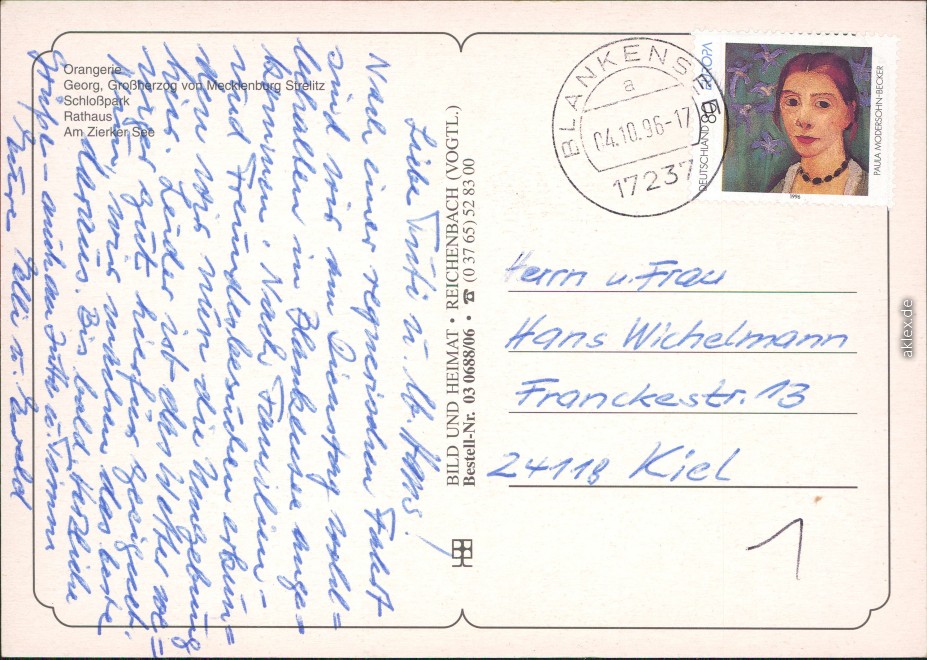 Orangerie
Georg, Großherzog von Mecklenburg Strelitz
Schloßpark
Rathaus
Am Zierker See
Liebe Trüti u. lb. Hans!
Nach einer regnerischen Fahrt
sind wir am Dienstag wohl=
behalten in Blankensee ange=
kommen. Nach Familien-
und Freundesbesuchen erkun=
den wir nun die Umgebung
hier. Leider ist das Wetter we=
niger gut hierfür geeignet.
Aber wir machen das beste
daraus. Bis bald, herzliche
Grüße – auch an Jutta u. Timm
Eure Elli u. Ewald
BILD UND HEIMAT • REICHENBACH (VOGTL.)
Bestell-Nr. 03 0688/06 • ☎ (0 37 65) 52 83 00
BLANKENSEE
a
04.10.96-17
17237
EUROPA
DEUTSCHLAND 80
PAULA MODERSOHN-BECKER
1996
Herrn u. Frau
Hans Wichelmann
Franckestr. 13
24118 Kiel
1
aklex.de